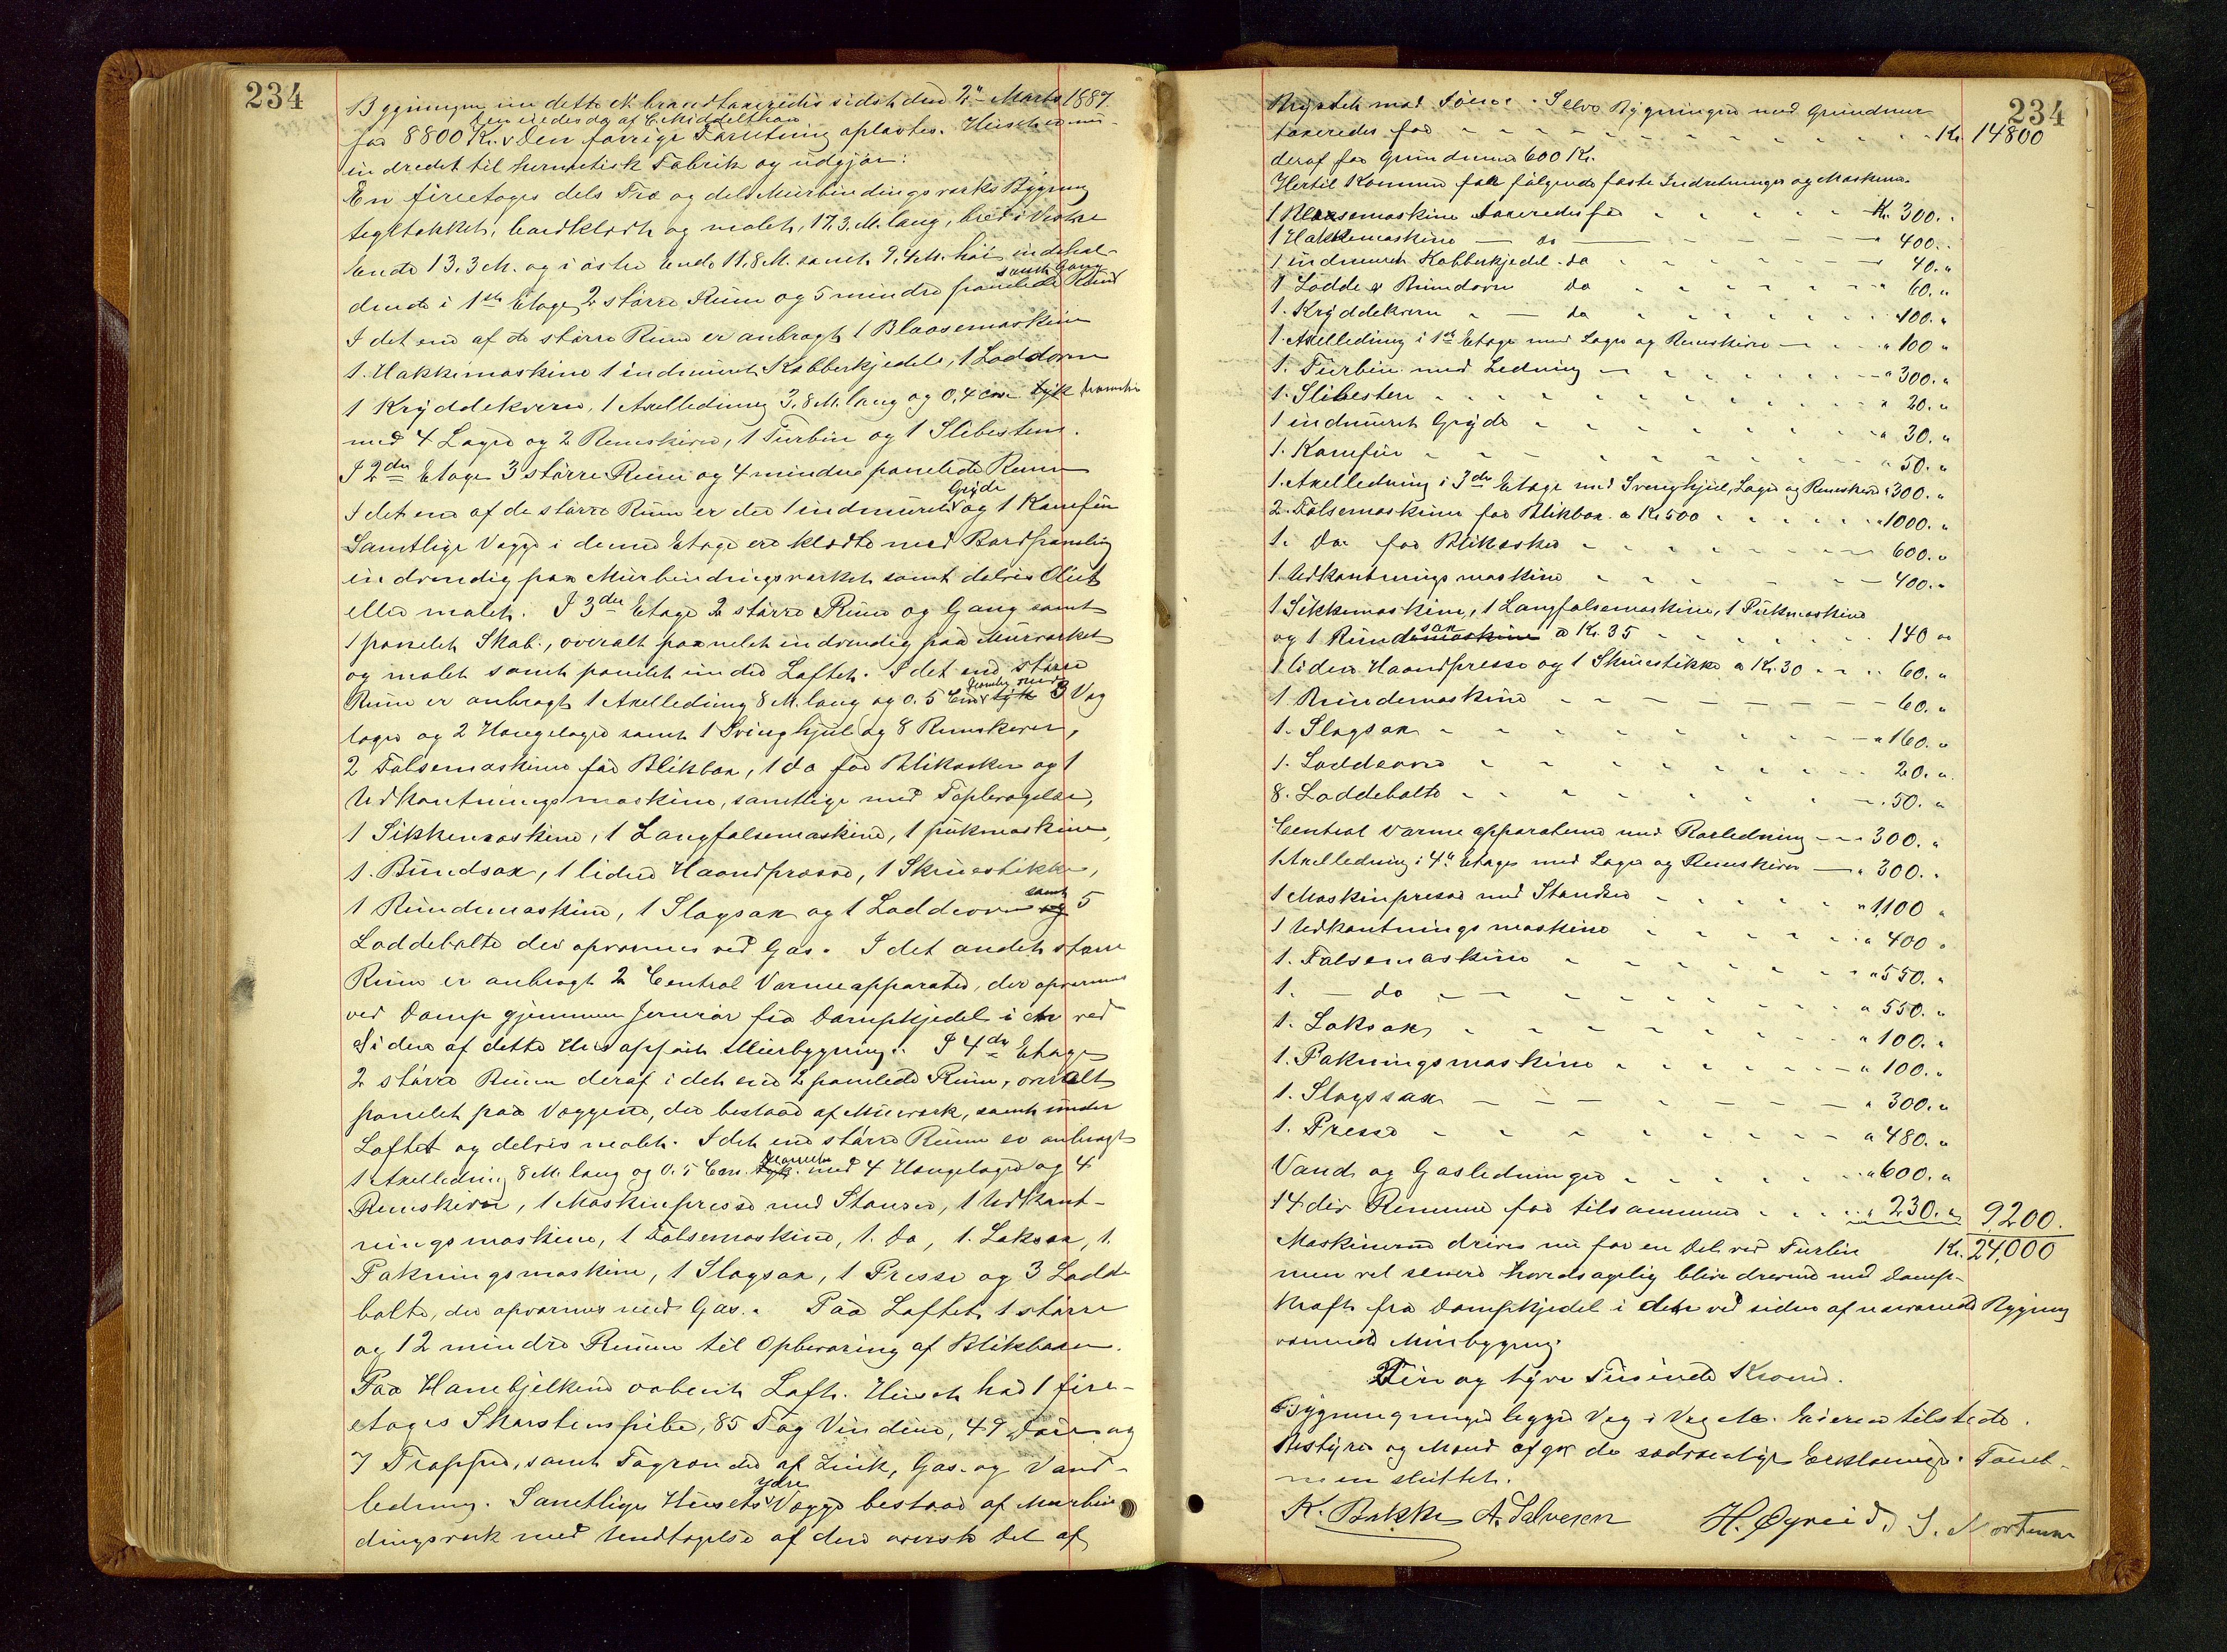 234
Bygningen under dette No brandtaxeredes sidst den 2den Marts 1887
nedrevedes og af C Middelthon
for 8800 Kr. Den forrige Forretning oplæstes. Huset er nu
indredet til hermetisk Fabrik og udgjør:
En fireetages dels Træ og dels Murbindingsverks Bygning
teglstækket, bordklædt og malet, 17,3 M. lang, bred i Vestre
Ende 13,3 M. og i østre Ende 11,8 M. samt 9,4 M. høi indehol-
samt Gang
dende i 1ste Etage 2 større Rum og 5 mindre panelede Rum
I det ene af de større Rum er anbragt 1 Blaasemaskine
1 Hakkemaskine 1 indmuret Kobberkjedel, 1 Loddeovn
1 Kryddekvern, 1 Axelledning 3,8 M. lang og 0,4 cm tyk diameter
med 4 Lagre og 2 Remskiver, 1 Turbin og 1 Slibesten.
I 2den Etage 3 større Rum og 4 mindre panelede Rum
Gryde
I det ene af de større Rum er der 1 indmuret og 1 Komfur
Samtlige Vægge i denne Etage ere klædte med Bordpaneling
indvendig paa Murbindingsverket samt delvis Oliet
eller malet. I 3die Etage 2 større Rum og Gang samt
1 panelet Skab, overalt paanelet indvendig paa Murværket
og malet samt panelet under Loftet. I det ene større
diameter med
Rum er anbragt 1 Axelledning 8 M. lang og 0.5 Cm tyk 3 Væg
lagre og 2 Hængelagre samt 1 Svinghjul og 8 Remskiver,
2 Falsemaskiner for Blikbox, 1 do for Blikæsker og 1
Udkantningsmaskine, samtlige med Tapbevægelse,
1 Sikkemaskine, 1 Langfalsemaskine, 1 pukmaskine,
1 Bundsax, 1 liden Haandpresse, 1 Skruestikke,
samt
1 Rundemaskine, 1 Slagsax og 1 Loddeovn og 5
Loddebolte der opvarmes ved Gas. I det andet større
Rum er anbragt 2 Central Varmeapparater, der opvarmes
ved Damp gjennem Jernrør fra Dampkjedel i et ved
Siden af dette Hus opført Murbygning. I 4de Etage
2 større Rum deraf i det ene 2 panelede Rum, overalt
panelet paa Væggene, der bestaar af Murverk, samt under
Loftet og delvis malet. I det ene større Rum er anbragt
diameter
1 Axelledning 8 M. lang og 0.5 Cm. tyk. med 4 Hængelagre og 4
Remskiver, 1 Maskinpresse med Stanser, 1 Udkant-
ningsmaskine, 1 Falsemaskine, 1. do, 1. Laksax, 1.
Pakningsmaskine, 1 Slagsax, 1 Presse og 3 Lodde
bolte, der opvarmes med Gas. Paa Loftet 1 større
og 12 mindre Rum til Opbevaring af Blikboxer.
Paa Hanebjelkene aabent Loft. Huset har 1 fire-
etages Skorstenspibe, 85 Fag Vinduer, 49 Døre og
7 Trapper, samt Tagrender af Zink, Gas- og Vand-
ydre
ledning. Samtlige Husets Vægge bestaar af Murbin
dingsverk med Undtagelse af den øverste Del af
234
Brystet mod Søen. Selve Bygningen med Grundmur
taxeredes for Kr. 14800
deraf for Grundmur 600 Kr.
Hertil Kommer for følgende faste Indretninger og Maskiner.
1 Blaasemaskine taxeredes for Kr. 300. "
1 Hakkemaskine do " 400. "
1 indmuret Kobberkjedel do 40. "
1 Lodde & Brændovn do " 60. "
1. Kryddekvern do " 100. "
1. Axelledning i 1ste Etage med Lagre og Remskiver " 100 "
1. Turbin med Ledning " 300. "
1. Slibesten " 20. "
1 indmuret Gryde " 30. "
1. Komfur " 50. "
1. Axelledning i 3die Etage med Svinghjul, Lagre og Remskiver " 300. "
2. Falsemaskiner for Blikbox a Kr 500 " 1000. "
1. Do for Blikæsker 600. "
1. Udkantningsmaskine 400. "
1 Sikkemaskine, 1 Langfalsemaskine, 1 Pukmaskine
sax
og 1 Rundemaskine a Kr. 35 140 "
1 liden Haandpresse og 1 Skruestikke a Kr. 30 60. "
1 Rundemaskine 60. "
1. Slagsax " 160. "
1. Loddeovn 20. "
8. Loddebolte 50. "
Central varmeapparaterne med Rørledning 300. "
1 Axelledning i 4de Etage med Lagre og Remskiver " 300. "
1 Maskinpresse med Stanser " 1,100 "
1 Udkantningsmaskine " 400 "
1. Falsemaskine " 550. "
1. do " 550. "
1. Laksax " 100. "
1. Pakningsmaskine " 100. "
1. Slagssax " 300. "
1. Presse " 480. "
Vand og Gasledninger " 600. "
14 div Remme for tilsammen " 230. " 9,200.
Maskinerne drives nu for en Del ved Turbin Kr. 24,000
men vel senere hovedsagelig blive drevne med Damp-
kraft fra Dampkjedel i det ved siden af nærværende Bygning
værende Murbygning.
Fire og tyve Tusinde Kroner.
Bygningen ligger Væg i Væg Eieren tilstede.
Bestyrer og Mænd afgav de sædvanlige Erklæringer. Taxt-
men sluttet.
K. Bakke A. Salvesen H. Øgreid. J. Mortensen